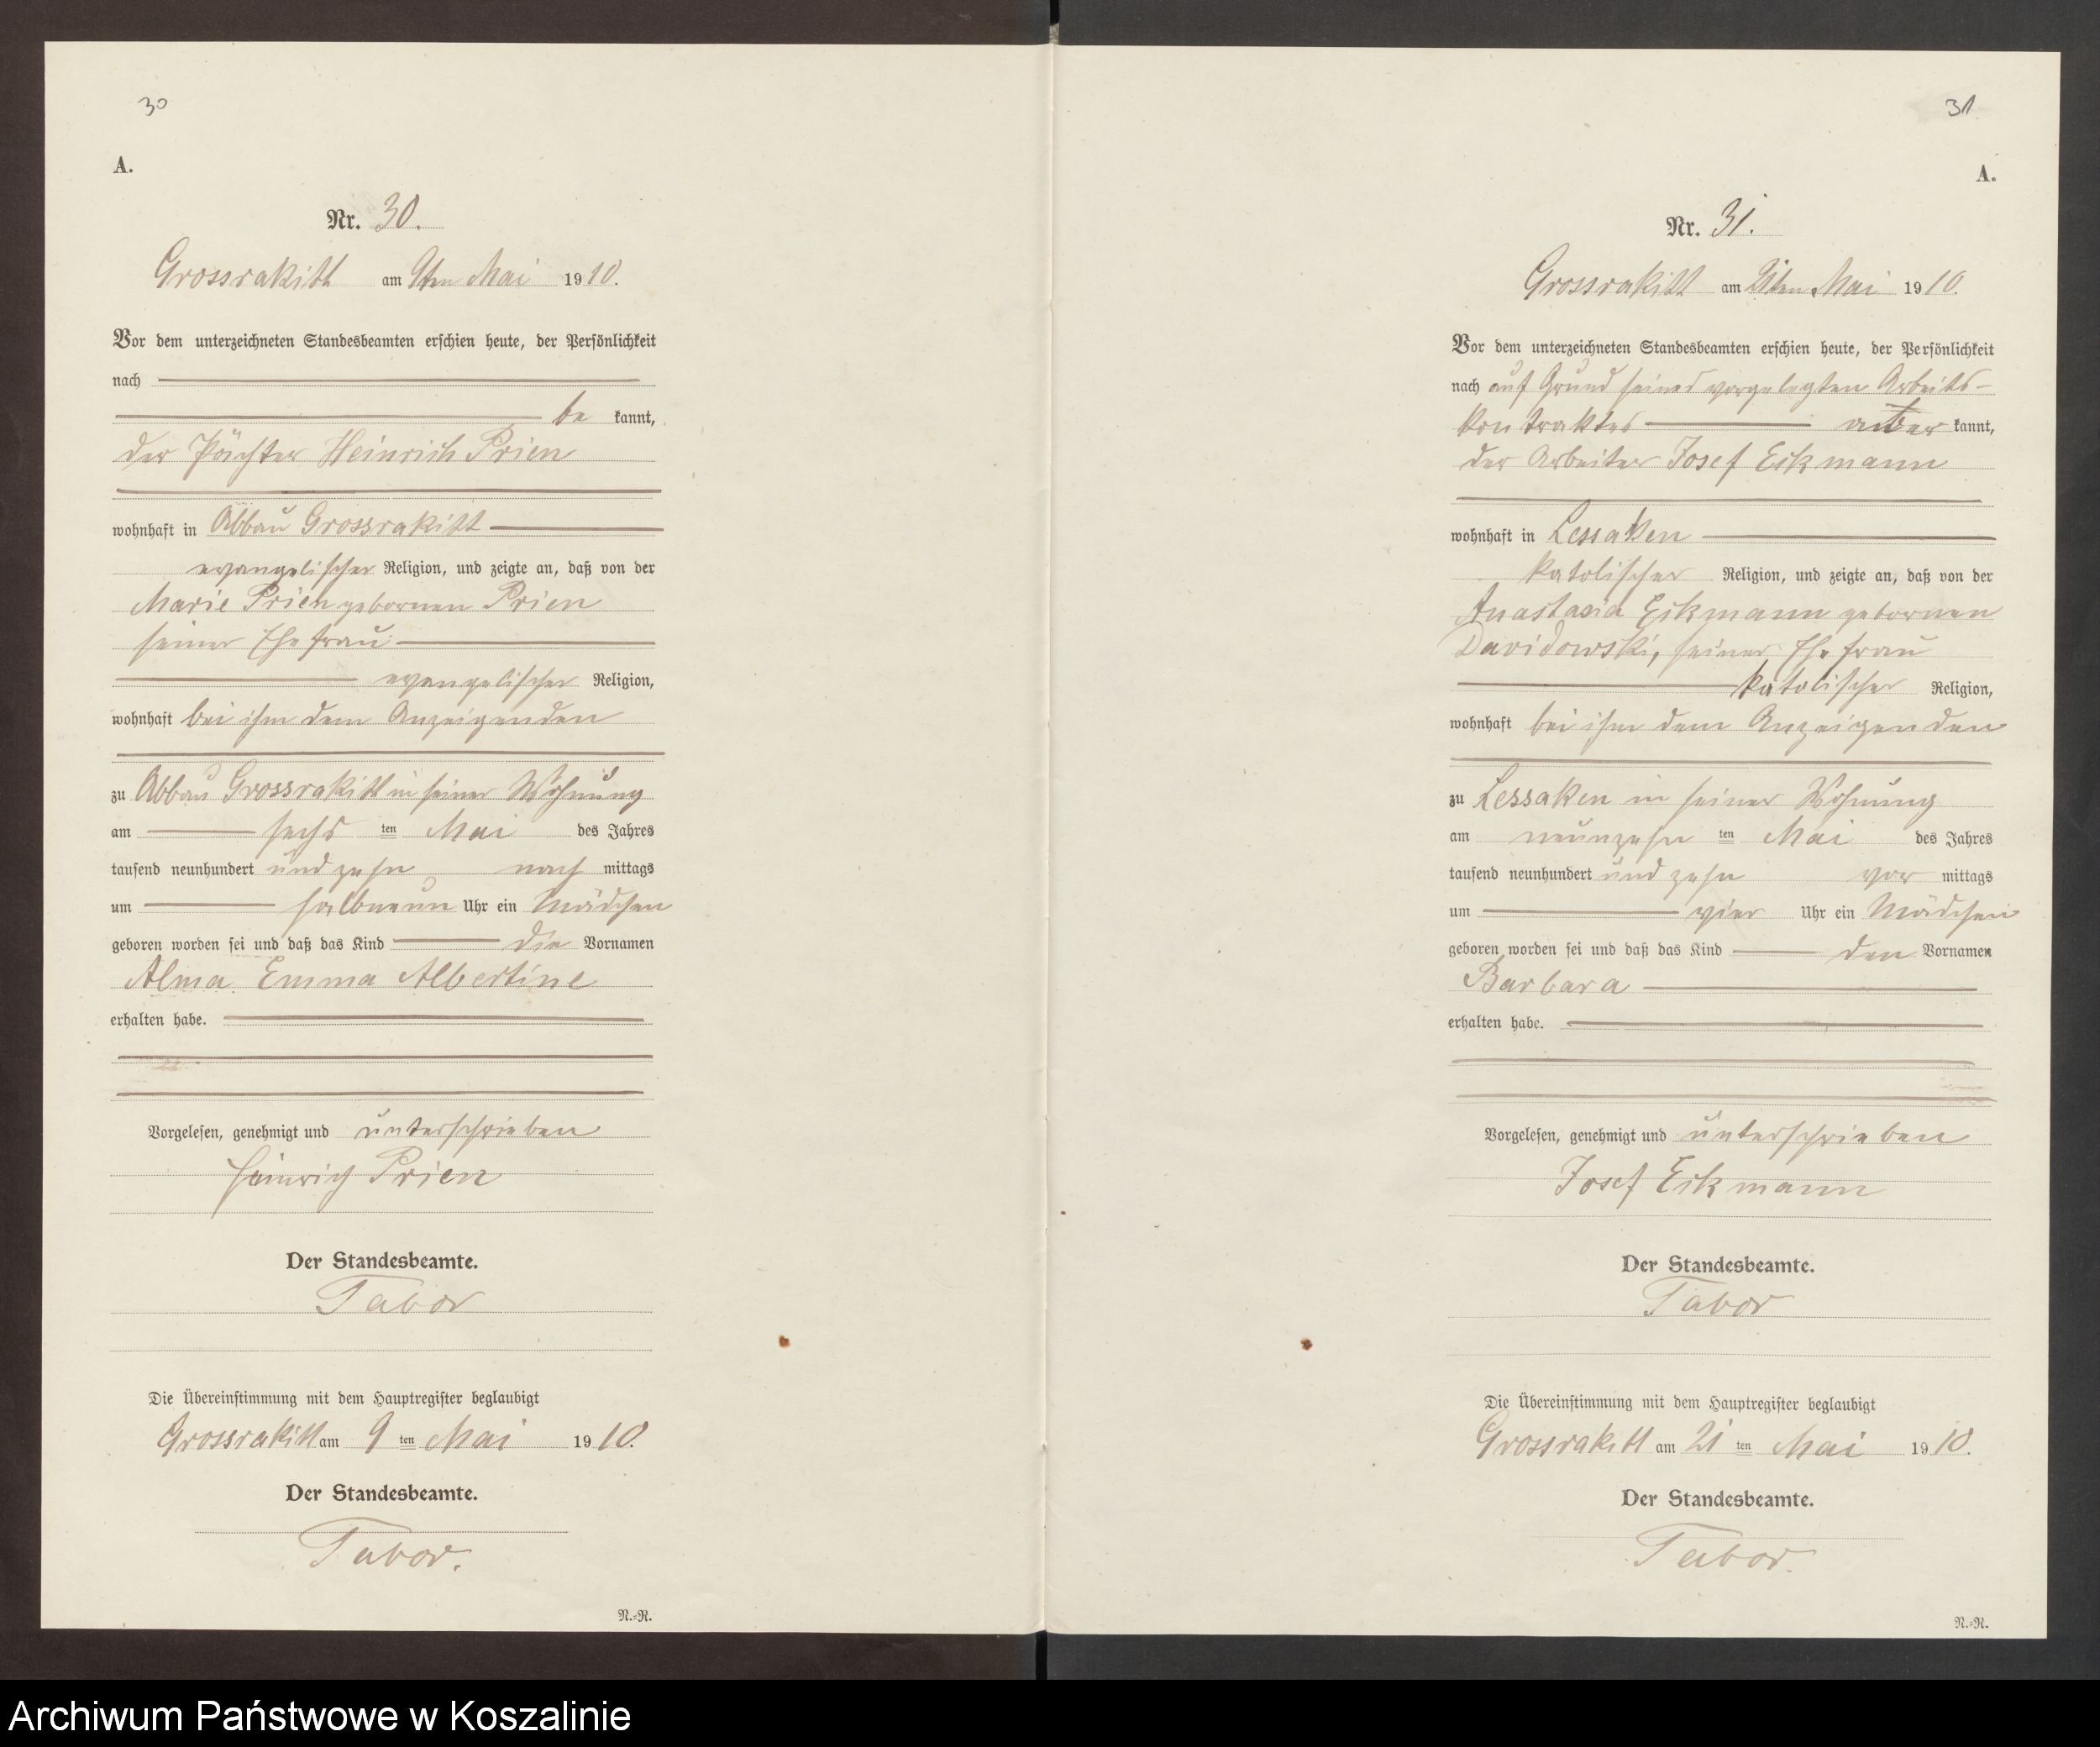 30
A.
Nr. 30.
Grossrakitt am 9ten Mai 1910.
Vor dem unterzeichneten Standesbeamten erschien heute, der Persönlichkeit
nach
be kannt,
der Pächter Heinrich Prien
wohnhaft in Abbau Grossrakitt
evangelischer Religion, und zeigte an, daß von der
Marie Prien gebornen Prien
seiner Ehefrau
evangelischer Religion,
wohnhaft bei ihm dem Anzeigenden
zu Abbau Grossrakitt in seiner Wohnung
am sechs ten Mai des Jahres
tausend neunhundert und zehn nach mittags
um halbneun Uhr ein Mädchen
geboren worden sei und daß das Kind die Vornamen
Alma Emma Albertine
erhalten habe.
Vorgelesen, genehmigt und unterschrieben
Heinrich Prien
Der Standesbeamte.
Tabor
Die Übereinstimmung mit dem Hauptregister beglaubigt
Grossrakitt am 9 ten Mai 1910.
Der Standesbeamte.
Tabor.
N.=R.
31
A.
Nr. 31.
Grossrakitt am 21ten Mai 1910.
Vor dem unterzeichneten Standesbeamten erschien heute, der Persönlichkeit
nach auf Grund seines vorgelegten Arbeits-
kontraktes aner kannt,
der Arbeiter Josef Eikmann
wohnhaft in Lessaken
katolischer Religion, und zeigte an, daß von der
Anastasia Eikmann gebornen
Davidowski, seiner Ehefrau
katolischer Religion,
wohnhaft bei ihm dem Anzeigenden
zu Lessaken in seiner Wohnung
am neunzehn ten Mai des Jahres
tausend neunhundert und zehn vor mittags
um vier Uhr ein Mädchen
geboren worden sei und daß das Kind den Vornamen
Barbara
erhalten habe.
Vorgelesen, genehmigt und unterschrieben
Josef Eikmann
Der Standesbeamte.
Tabor
Die Übereinstimmung mit dem Hauptregister beglaubigt
Grossrakitt am 21 ten Mai 1910.
Der Standesbeamte.
Tabor.
N.=R.
Archiwum Państwowe w Koszalinie